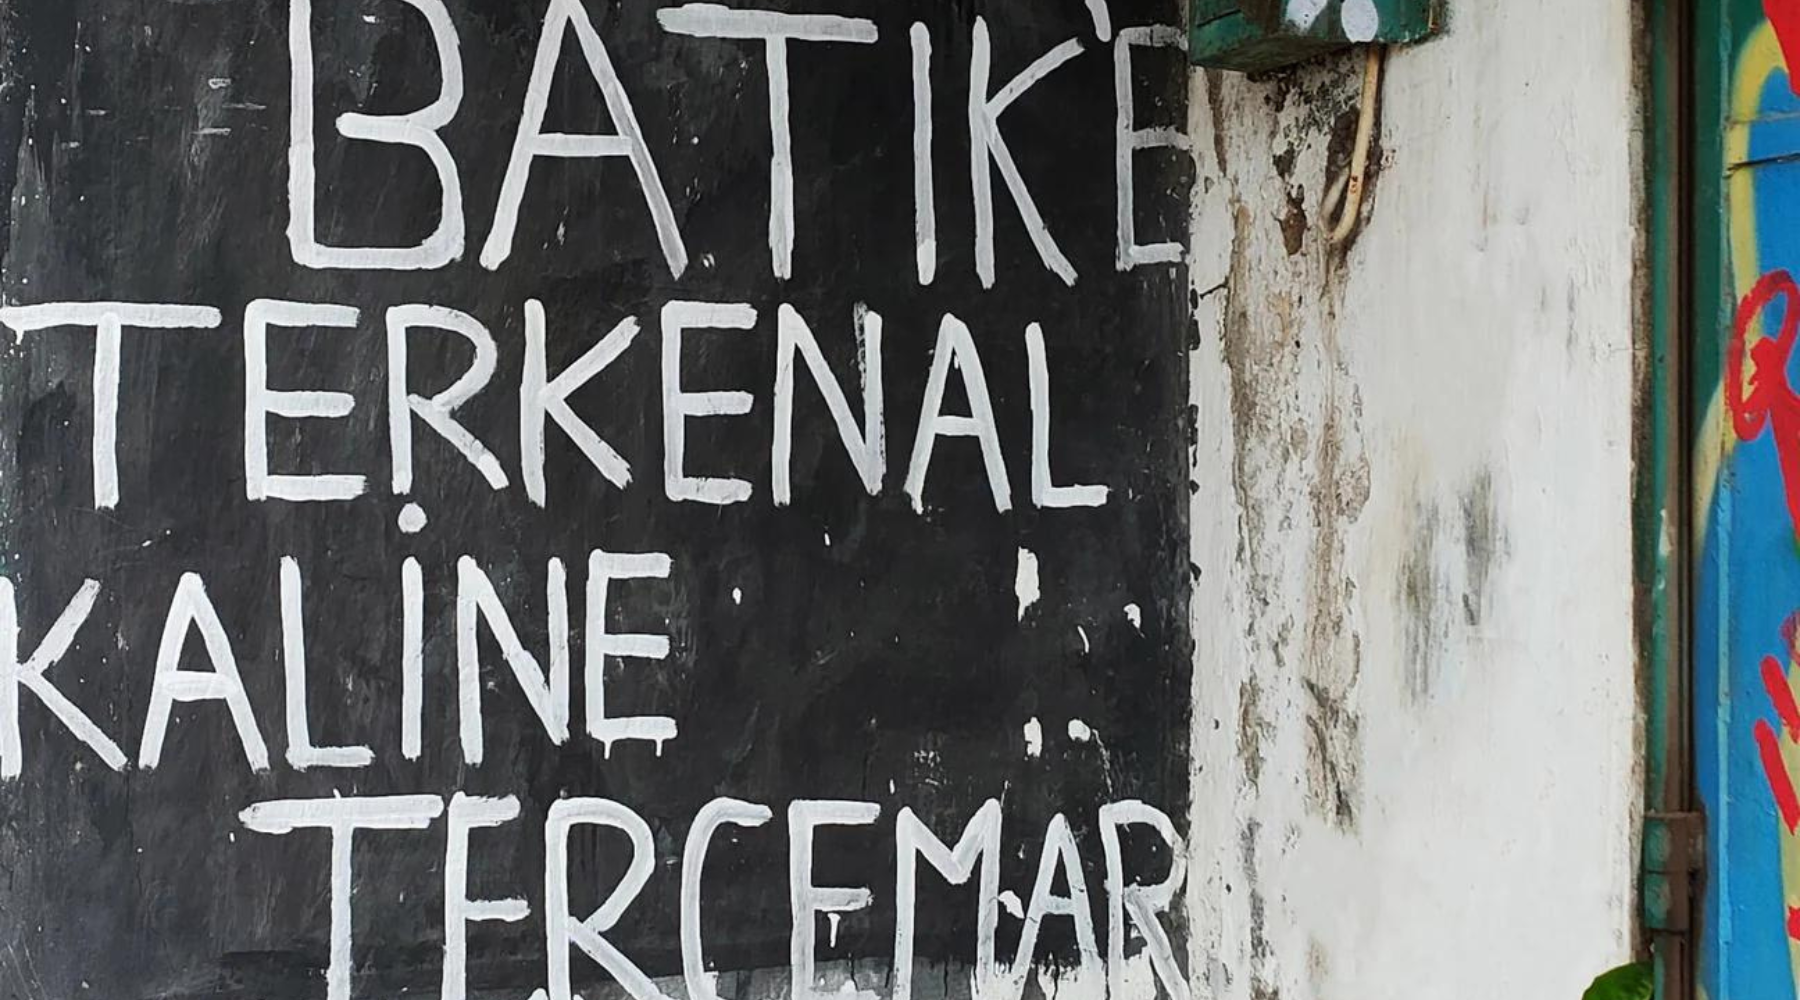 BATIK'E
TERKENAL
KALiNE
TERCEMAR